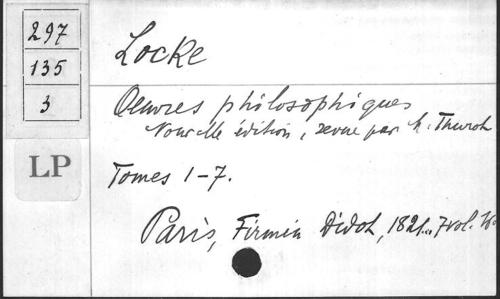 297
135
3
LP
Locke
Oeuvres philosophiques
Nouvelle édition, revue par M. Thurot
Tomes 1-7.
Paris, Firmin Didot, 1821... 7 vol.